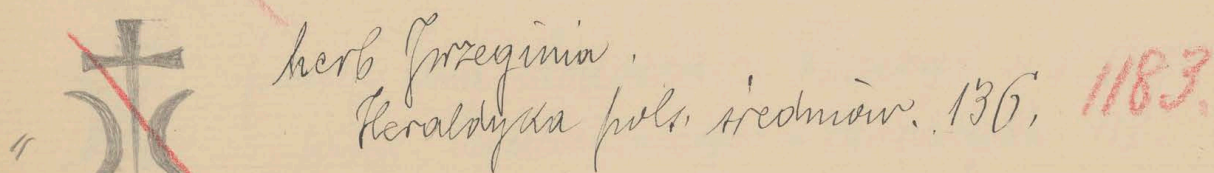 herb Przeginia.
Heraldyka pols. średniow. 136. 1183.
"